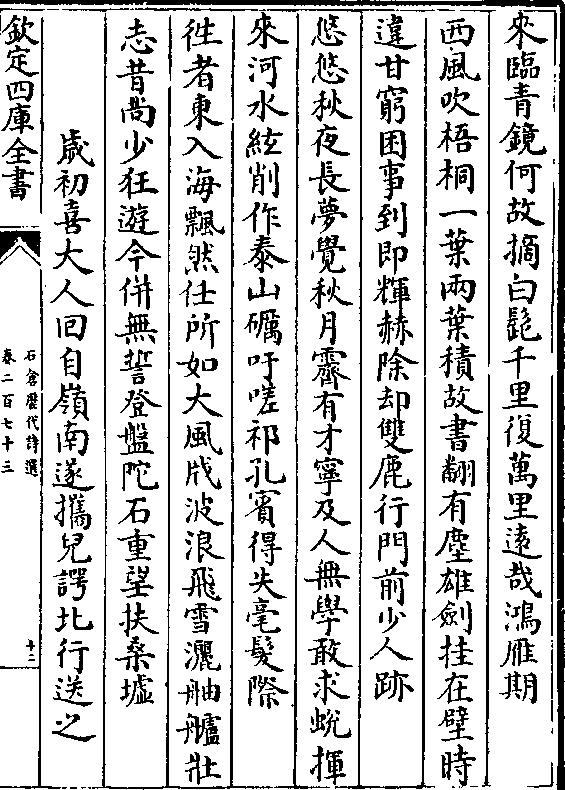 來臨青鏡何故摘白髭千里復萬里遠哉鴻雁期
西風吹梧桐一葉兩葉積故書翻有塵雄劍挂在壁時
違甘窮困事到即輝赫除却雙鹿行門前少人跡
悠悠秋夜長夢覺秋月霽有才寧及人無學敢求蛻揮
來河水絃削作泰山礪吁嗟祁孔賓得失毫髮際
徃者東入海飄然任所如大風戕波浪飛雪灑舳艫壯
志昔尚少狂遊今併無誓登盤陀石重望扶桑墟
歲初喜大人回自嶺南遂攜兒諤北行送之
欽定四庫全書
石倉歷代詩選
卷二百七十三
十二